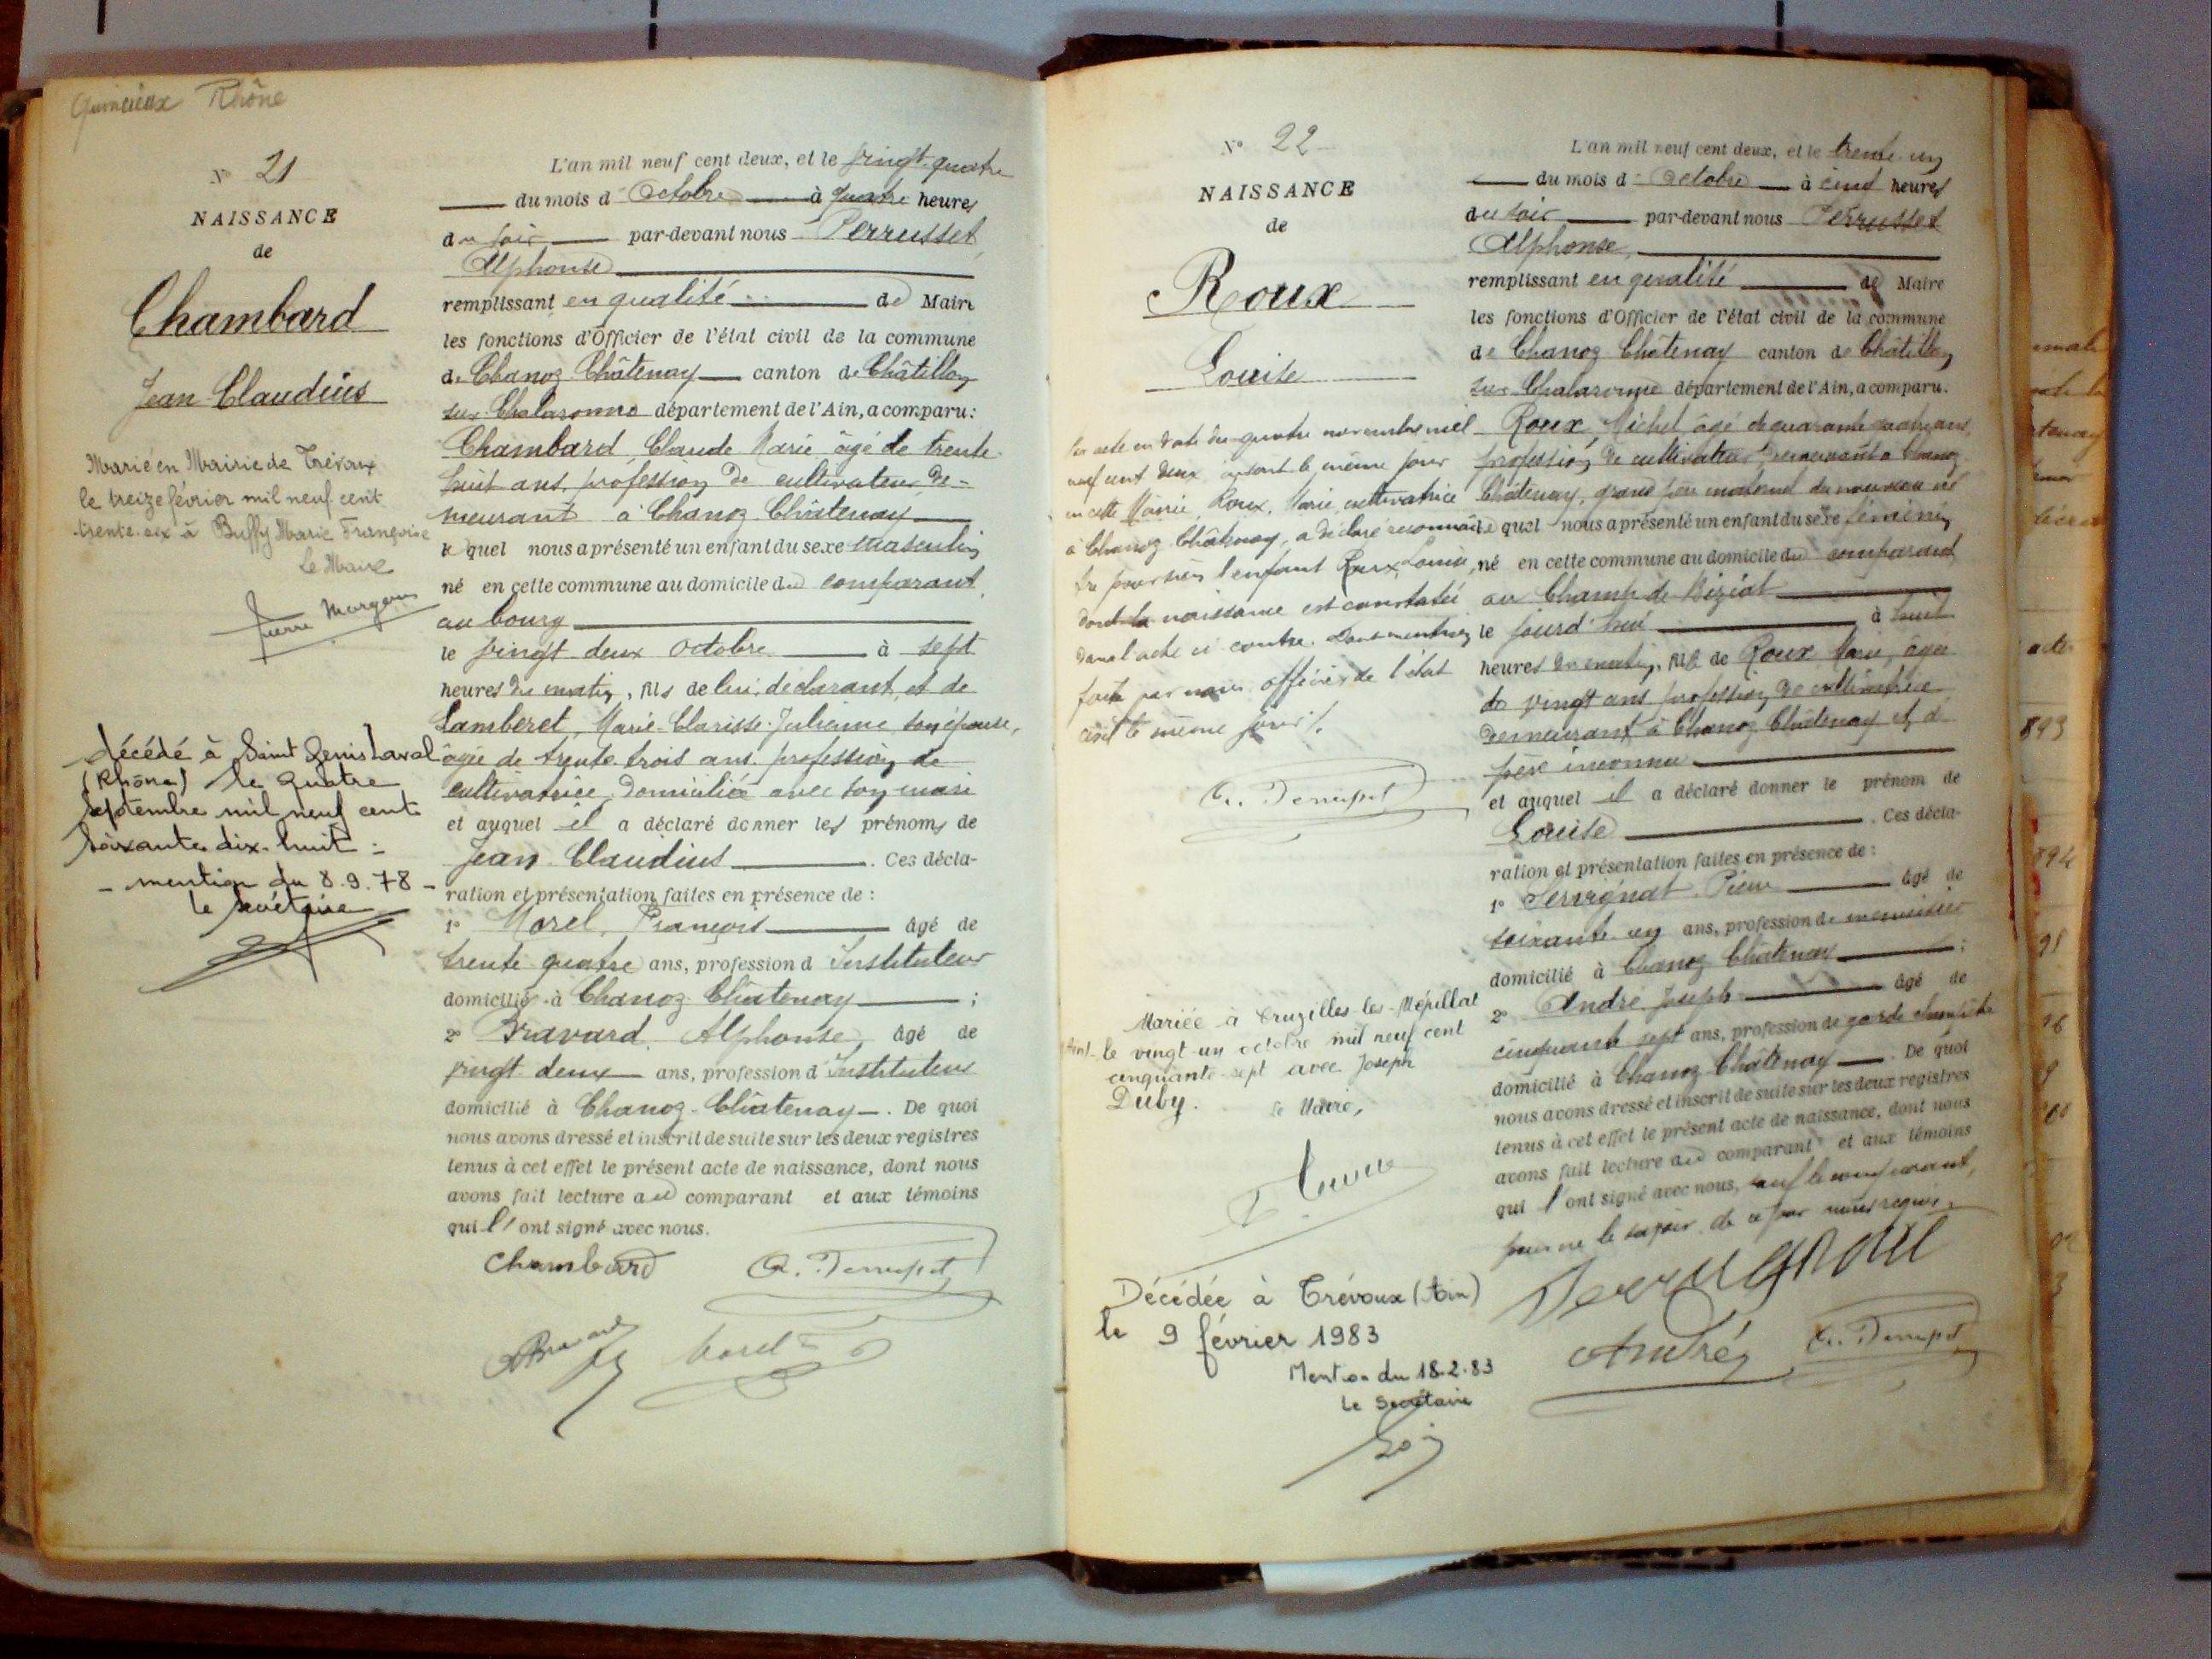 Quincieux Rhône
N° 21
NAISSANCE
de
Chambard
Jean Claudius
Marié en Mairie de Trévoux
le treize février mil neuf cent
trente six à Buffy Marie Françoise
Le Maire
Pierre
décédé à Saint Genis Laval
(Rhône) le quatre
septembre mil neuf cent
soixante dix-huit :
- mention du 8.9.78 -
le secrétaire
L'an mil neuf cent deux, et le vingt-quatre
du mois d'Octobre à quatre heures
du soir par-devant nous Perrusset
Alphonse
remplissant en qualité de Maire
les fonctions d'Officier de l'état civil de la commune
de Chanoz Châtenay canton de Châtillon
sur Chalaronne département de l'Ain, a comparu :
Chambard, Claude Marie âgé de trente
huit ans, profession de cultivateur de-
meurant à Chanoz Châtenay
le quel nous a présenté un enfant du sexe masculin
né en cette commune au domicile du comparant,
au bourg
le vingt deux Octobre à sept
heures du matin, fils de lui déclarant, et de
Lamberet, Marie-Clarisse-Julienne, son épouse,
âgée de trente trois ans, profession de
cultivatrice, domiciliée avec son mari
et auquel il a déclaré donner les prénoms de
Jean Claudius. Ces décla-
ration et présentation faites en présence de :
1° Morel, François âgé de
trente quatre ans, profession d'Instituteur
domicilié à Chanoz Châtenay ;
2° Bravard, Alphonse, âgé de
vingt deux ans, profession d'Instituteur
domicilié à Chanoz-Châtenay. De quoi
nous avons dressé et inscrit de suite sur les deux registres
tenus à cet effet le présent acte de naissance, dont nous
avons fait lecture au comparant et aux témoins
qui l'ont signé avec nous.
Chambard
A. Perrusset
ABravard
Morel
N° 22
NAISSANCE
de
Roux
Louise
Par acte en date du quatre novembre mil
neuf cent deux, inscrit le même jour
en cette Mairie, Roux, Marie, cultivatrice
à Chanoz Châtenay, a déclaré reconnaître
pour sien l'enfant Roux, Louise,
dont la naissance est constatée
dans l'acte ci contre. Dont mention
faite par nous, officier de l'état
civil le même jour.
A. Perrusset
Mariée à Cruzilles-les-Mépillat
(Ain) le vingt-un octobre mil neuf cent
cinquante-sept avec Joseph
Duby.
Le Maire,
Décédée à Trévoux (Ain)
le 9 février 1983
Mention du 18.2.83
Le Secrétaire
L'an mil neuf cent deux, et le trente-un
du mois d'Octobre à cinq heures
du soir par-devant nous Perrusset
Alphonse,
remplissant en qualité de Maire
les fonctions d'Officier de l'état civil de la commune
de Chanoz Châtenay canton de Châtillon
sur Chalaronne département de l'Ain, a comparu.
Roux, Michel âgé de quarante quatre ans,
profession de cultivateur demeurant à Chanoz
Châtenay, grand père maternel du nouveau né
le quel nous a présenté un enfant du sexe féminin
né en cette commune au domicile du comparant,
au Champ de Biziat
le jourd'hui à huit
heures du matin, fille de Roux Marie, âgée
de vingt ans profession de cultivatrice
demeurant à Chanoz Châtenay et de
père inconnu
et auquel il a déclaré donner le prénom de
Louise. Ces décla-
ration et présentation faites en présence de :
1° Servignat Pierre âgé de
soixante un ans, profession de menuisier
domicilié à Chanoz Châtenay ;
2° André Joseph âgé de
cinquante sept ans, profession de garde champêtre
domicilié à Chanoz Châtenay. De quoi
nous avons dressé et inscrit de suite sur les deux registres
tenus à cet effet le présent acte de naissance, dont nous
avons fait lecture au comparant et aux témoins
qui l'ont signé avec nous, sauf le comparant,
pour ne le savoir, de ce par nous requis.
Servignat
André
A. Perrusset
893